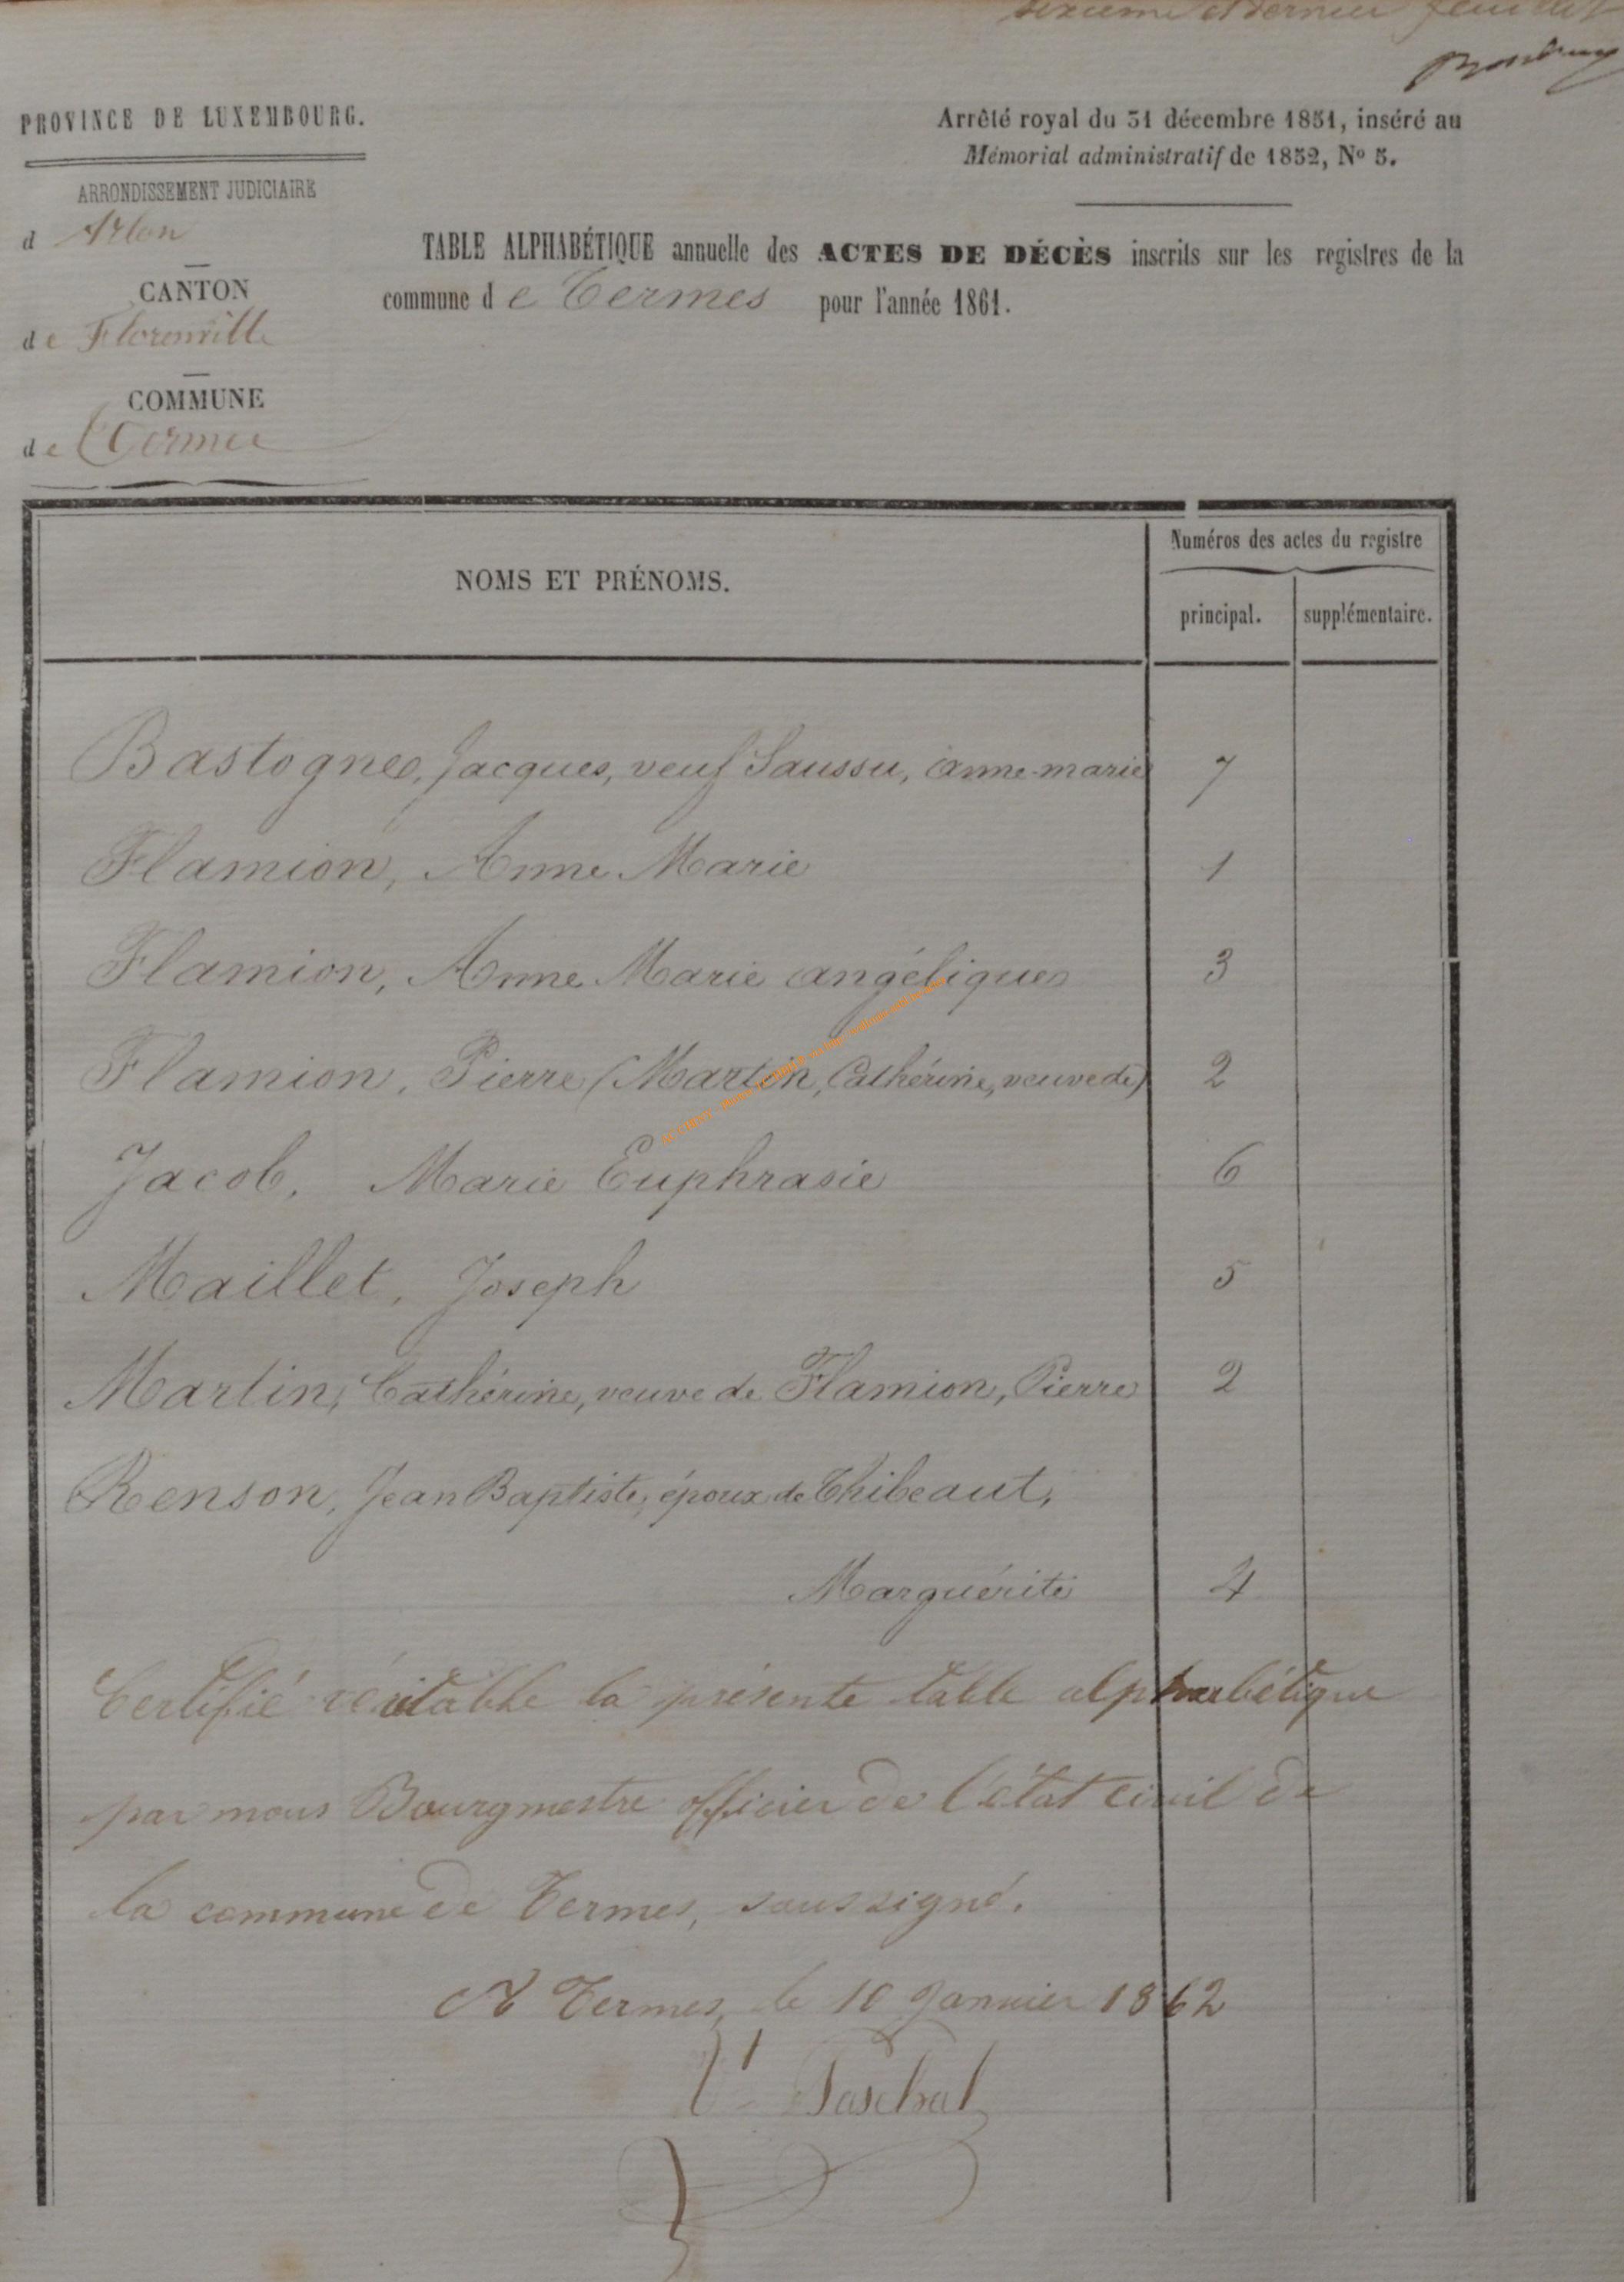 sixième et dernier feuillet
PROVINCE DE LUXEMBOURG.
ARRONDISSEMENT JUDICIAIRE
d Arlon
CANTON
de Florenville
COMMUNE
de Termes
Arrêté royal du 31 décembre 1851, inséré au
Mémorial administratif de 1852, No 5.
TABLE ALPHABÉTIQUE annuelle des ACTES DE DÉCÈS inscrits sur les registres de la
commune de Termes pour l'année 1861.
NOMS ET PRÉNOMS.
Numéros des actes du registre
principal.
supplémentaire.
Bastogne, Jacques, veuf Saussu, anne-marie 7
Flamion, Anne Marie 1
Flamion, Anne Marie angélique 3
Flamion, Pierre (Martin, Cathérine, veuve de) 2
Jacob, Marie Euphrasie 6
Maillet, Joseph 5
Martin, Cathérine, veuve de Flamion, Pierre 2
Renson, Jean Baptiste, époux de Thibeaut,
Marguérite 4
Certifié véritable la présente table alphabétique
par nous Bourgmestre officier de l'état civil de
la commune de Termes, soussigné.
A Termes, le 10 Janvier 1862
Paschal